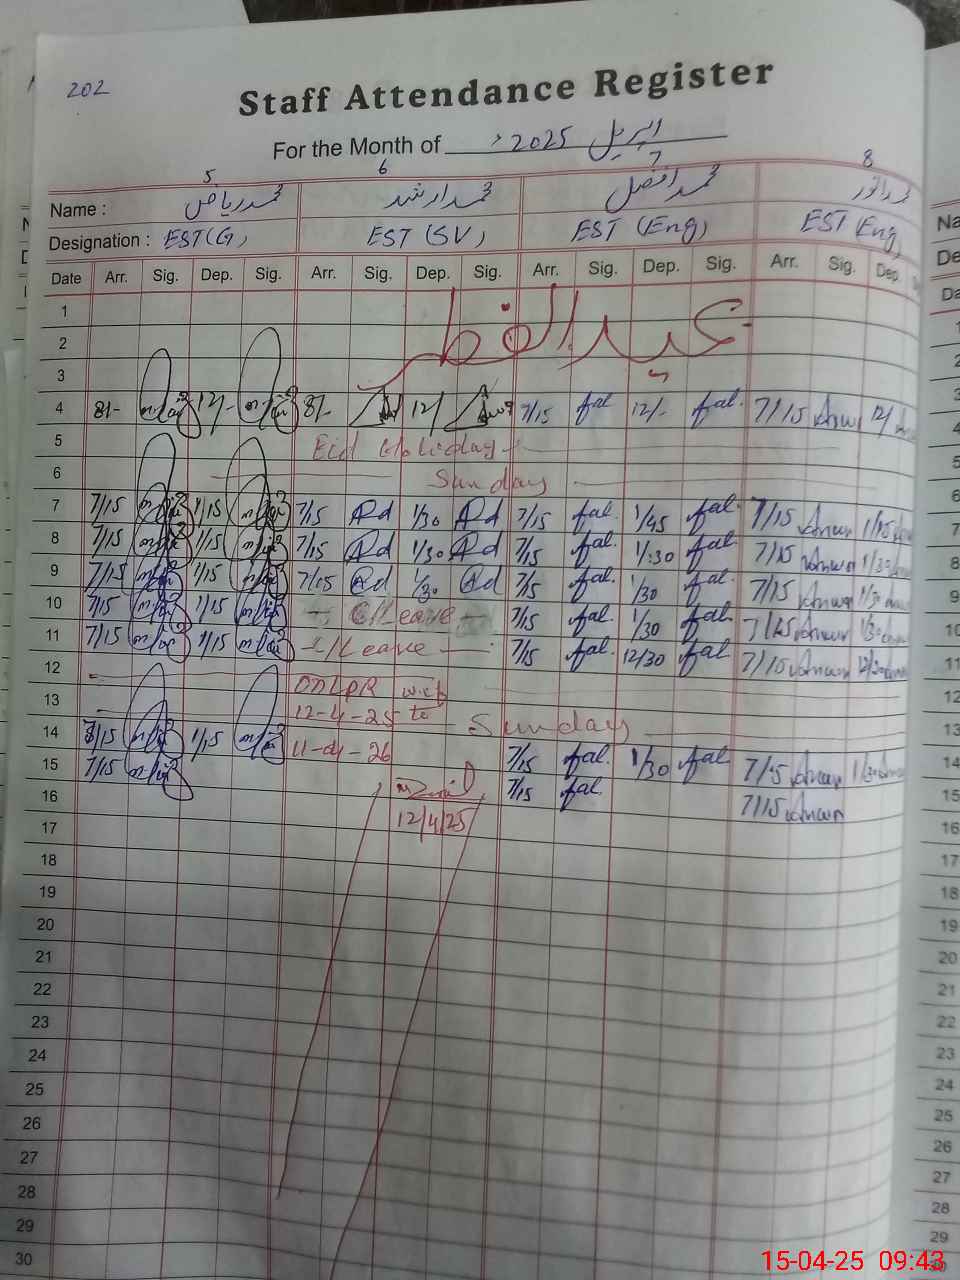 202
Staff Attendance Register
For the Month of اپریل 2025ء
5 6 7 8
Name : محمد ریاض محمد ارشد محمد افضل محمد انور
Designation : EST(G) EST (SV) EST (Eng) EST (Eng)
Date Arr. Sig. Dep. Sig. Arr. Sig. Dep. Sig. Arr. Sig. Dep. Sig. Arr. Sig. Dep.
1
عید الفطر
2
3
4 8/- 12/- 8/- 12/ 7/15 fal 12/- fal. 7/15 Anwar 12/
5 Eid Holiday
6 Sunday
7 7/15 1/15 7/15 Ad 1/30 Ad 7/15 fal. 1/45 fal. 7/15 Anwar
8 7/15 1/15 7/15 Ad 1:30 Ad 7/15 fal. 1/:30 fal. 7/15 Anwar 1/30
9 7/15 1/15 7/15 Ad 1/30 Ad 7/15 fal. 1/30 fal. 7/15 Anwar 1/30
10 7/15 1/15 C/Leave 7/15 fal. 1/30 fal. 7/15 Anwar 1/30
11 7/15 1/15 C/Leave 7/15 fal. 12/30 fal. 7/15 Anwar 12/30
12
13 w.e.f
12-4-25 to Sunday
14 1/15 11-04-26 7/15 fal. 1/30 fal. 7/15 Anwar 1/30
15 7/15 7/15 fal. 7/15 Anwar
16
12/4/25
17
18
19
20
21
22
23
24
25
26
27
28
29
30
15-04-25 09:43